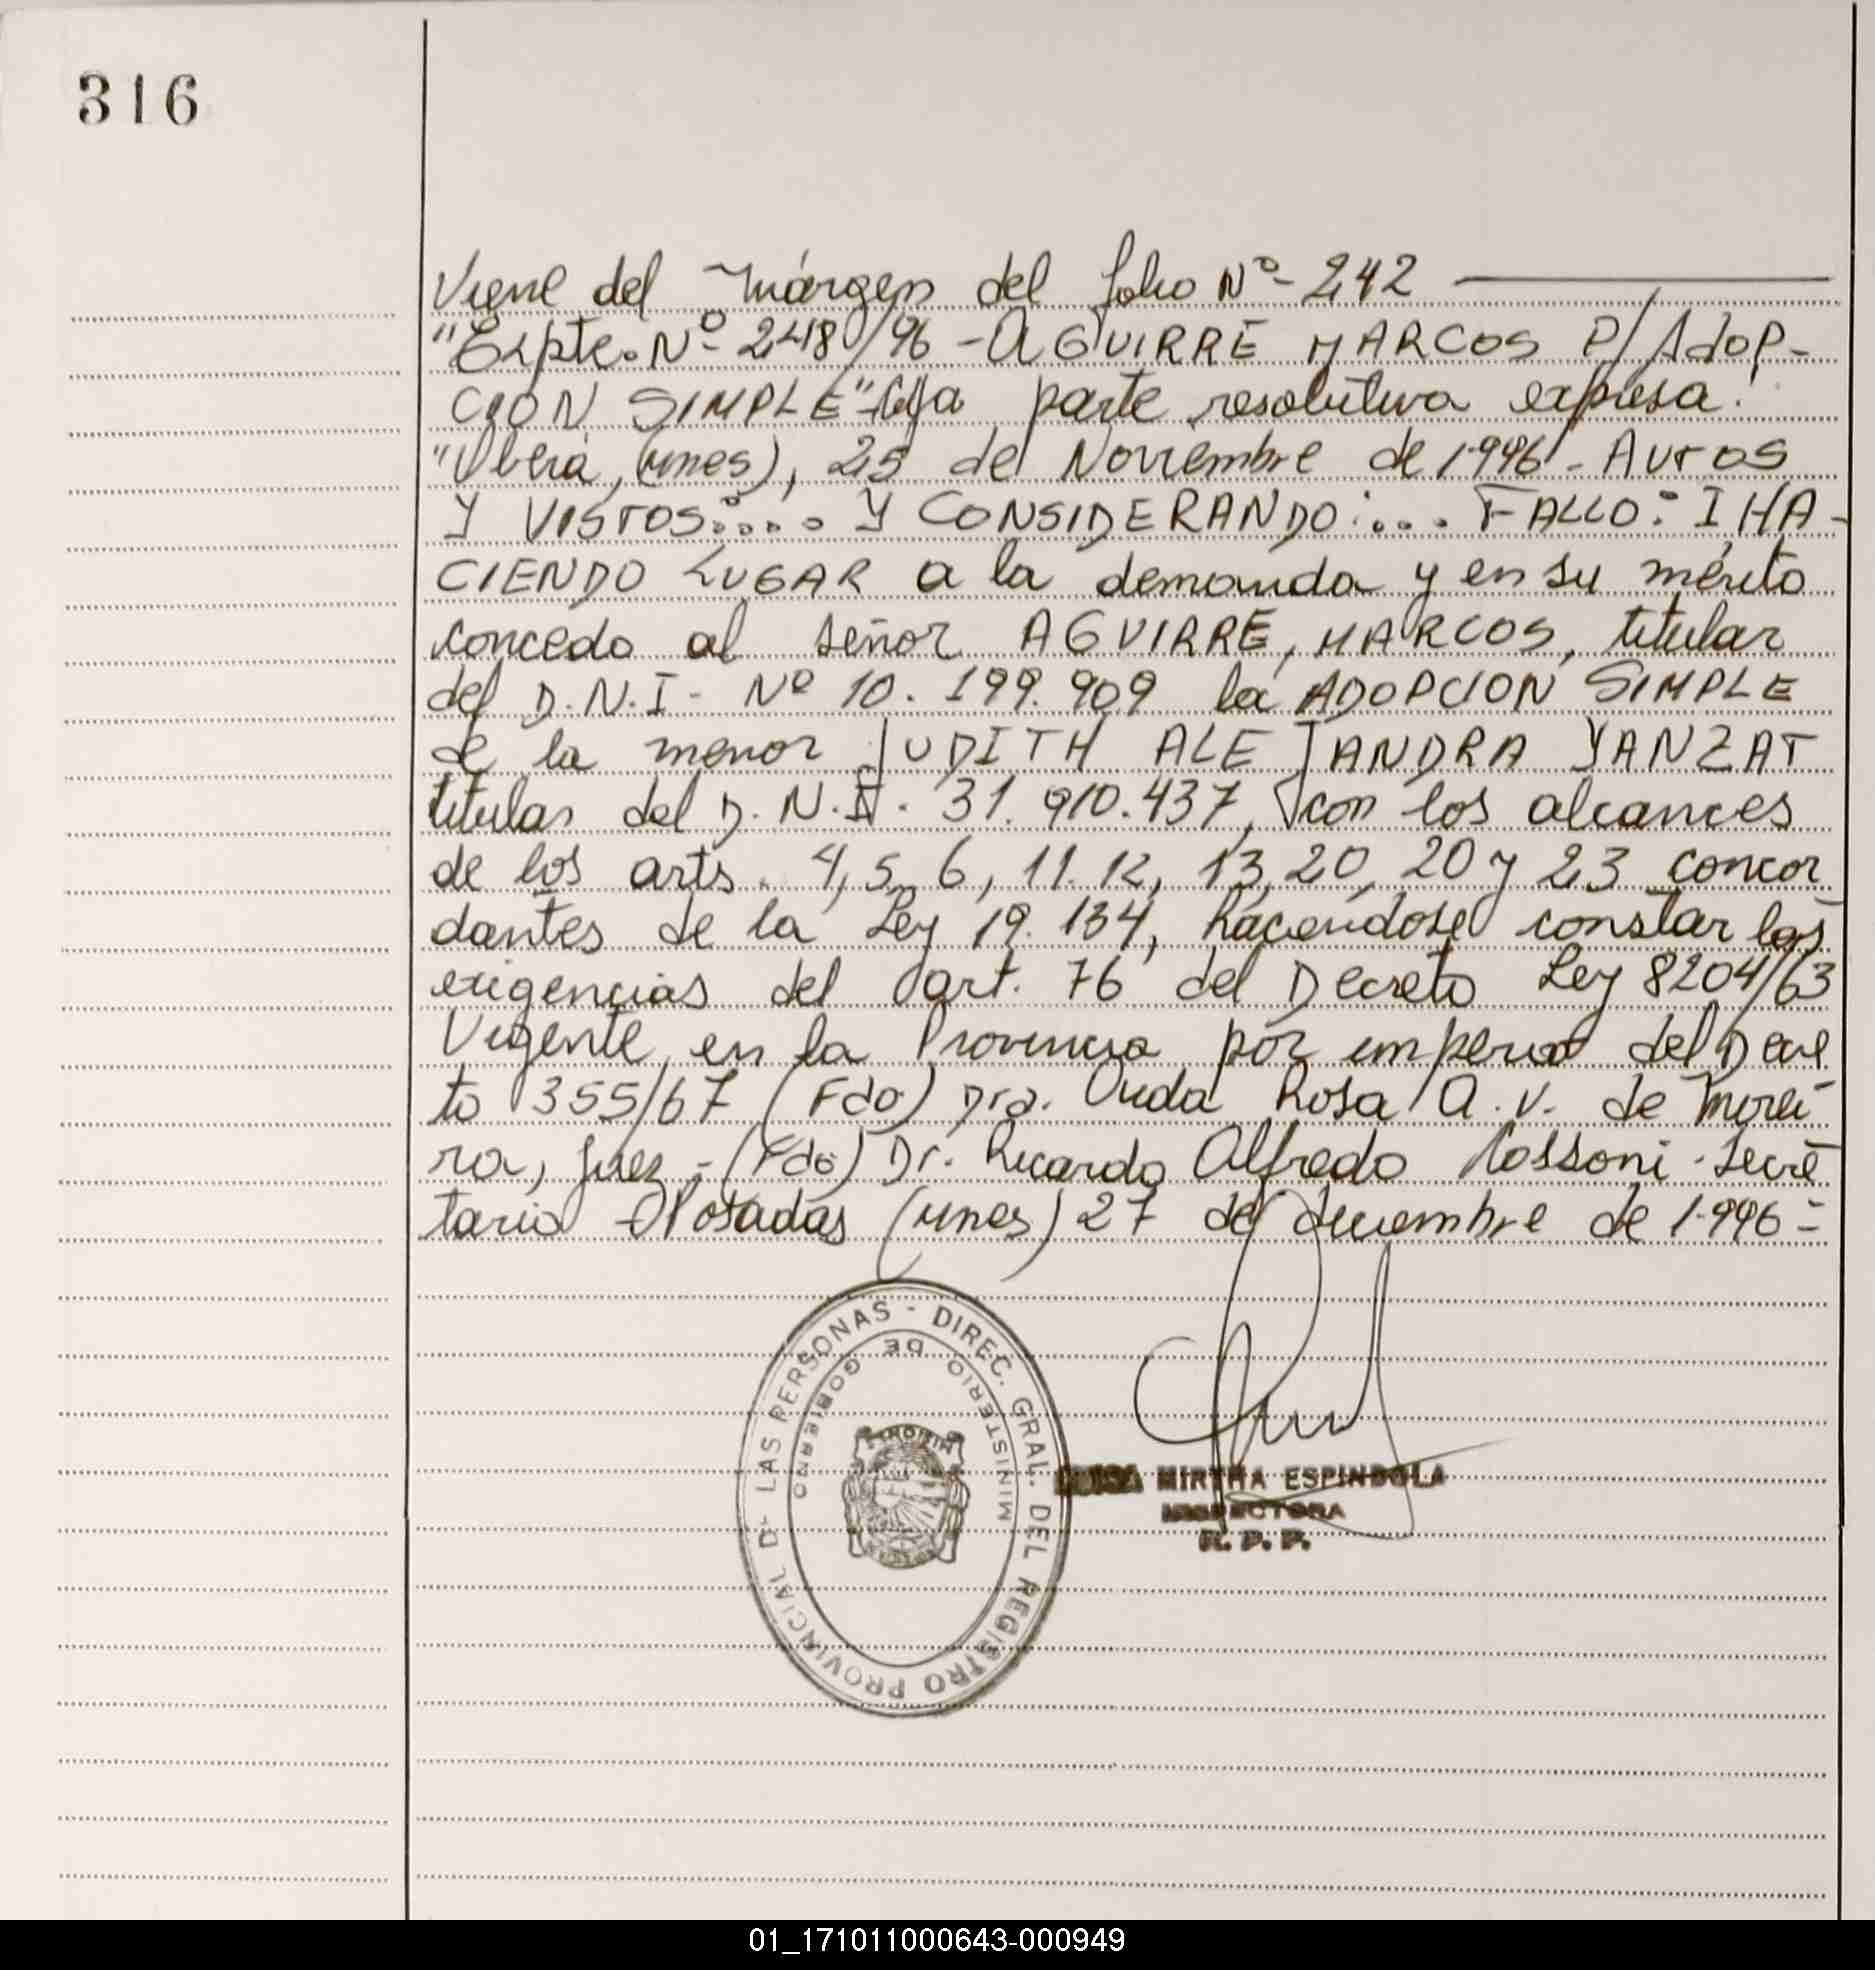 316
Viene del Márgen del folio Nº 242
"Expte. Nº 2418/96 - AGUIRRE MARCOS P/ AdoP-
CION SIMPLE" Cuya parte resolutiva expresa:
"Oberá, (mnes), 25 de Noviembre de 1.996 - AUTOS
Y VISTOS:.... Y CONSIDERANDO:... FALLO: I HA-
CIENDO LUGAR a la demanda y en su mérito
concedo al señor AGUIRRE, MARCOS, titular
del D.N.I - Nº 10.199.909 la ADOPCION SIMPLE
de la menor JUDITH ALEJANDRA YANZAT
titular del D.N.I. 31.910.437, con los alcances
de los arts. 4, 5, 6, 11. 12, 13, 20, 20 y 23 concor
dantes de la Ley 19.134, haciendose constar las
exigencias del art. 76 del Decreto Ley 8204/63
Vigente en la Provincia por imperio del Decre
to 355/67 (Fdo) Dra. Rosa A. V. de Morei
ra, Juez - (Fdo) Dr. Ricardo Alfredo Cossoni - Secre
tario - Posadas (mnes) 27 de diciembre de 1.996 =
DIREC. GRAL. DEL REGISTRO PROVINCIAL D- LAS PERSONAS -
MINISTERIO DE GOBIERNO
MIRTHA ESPINDOLA
INSPECTORA
R. P. P.
01_171011000643-000949